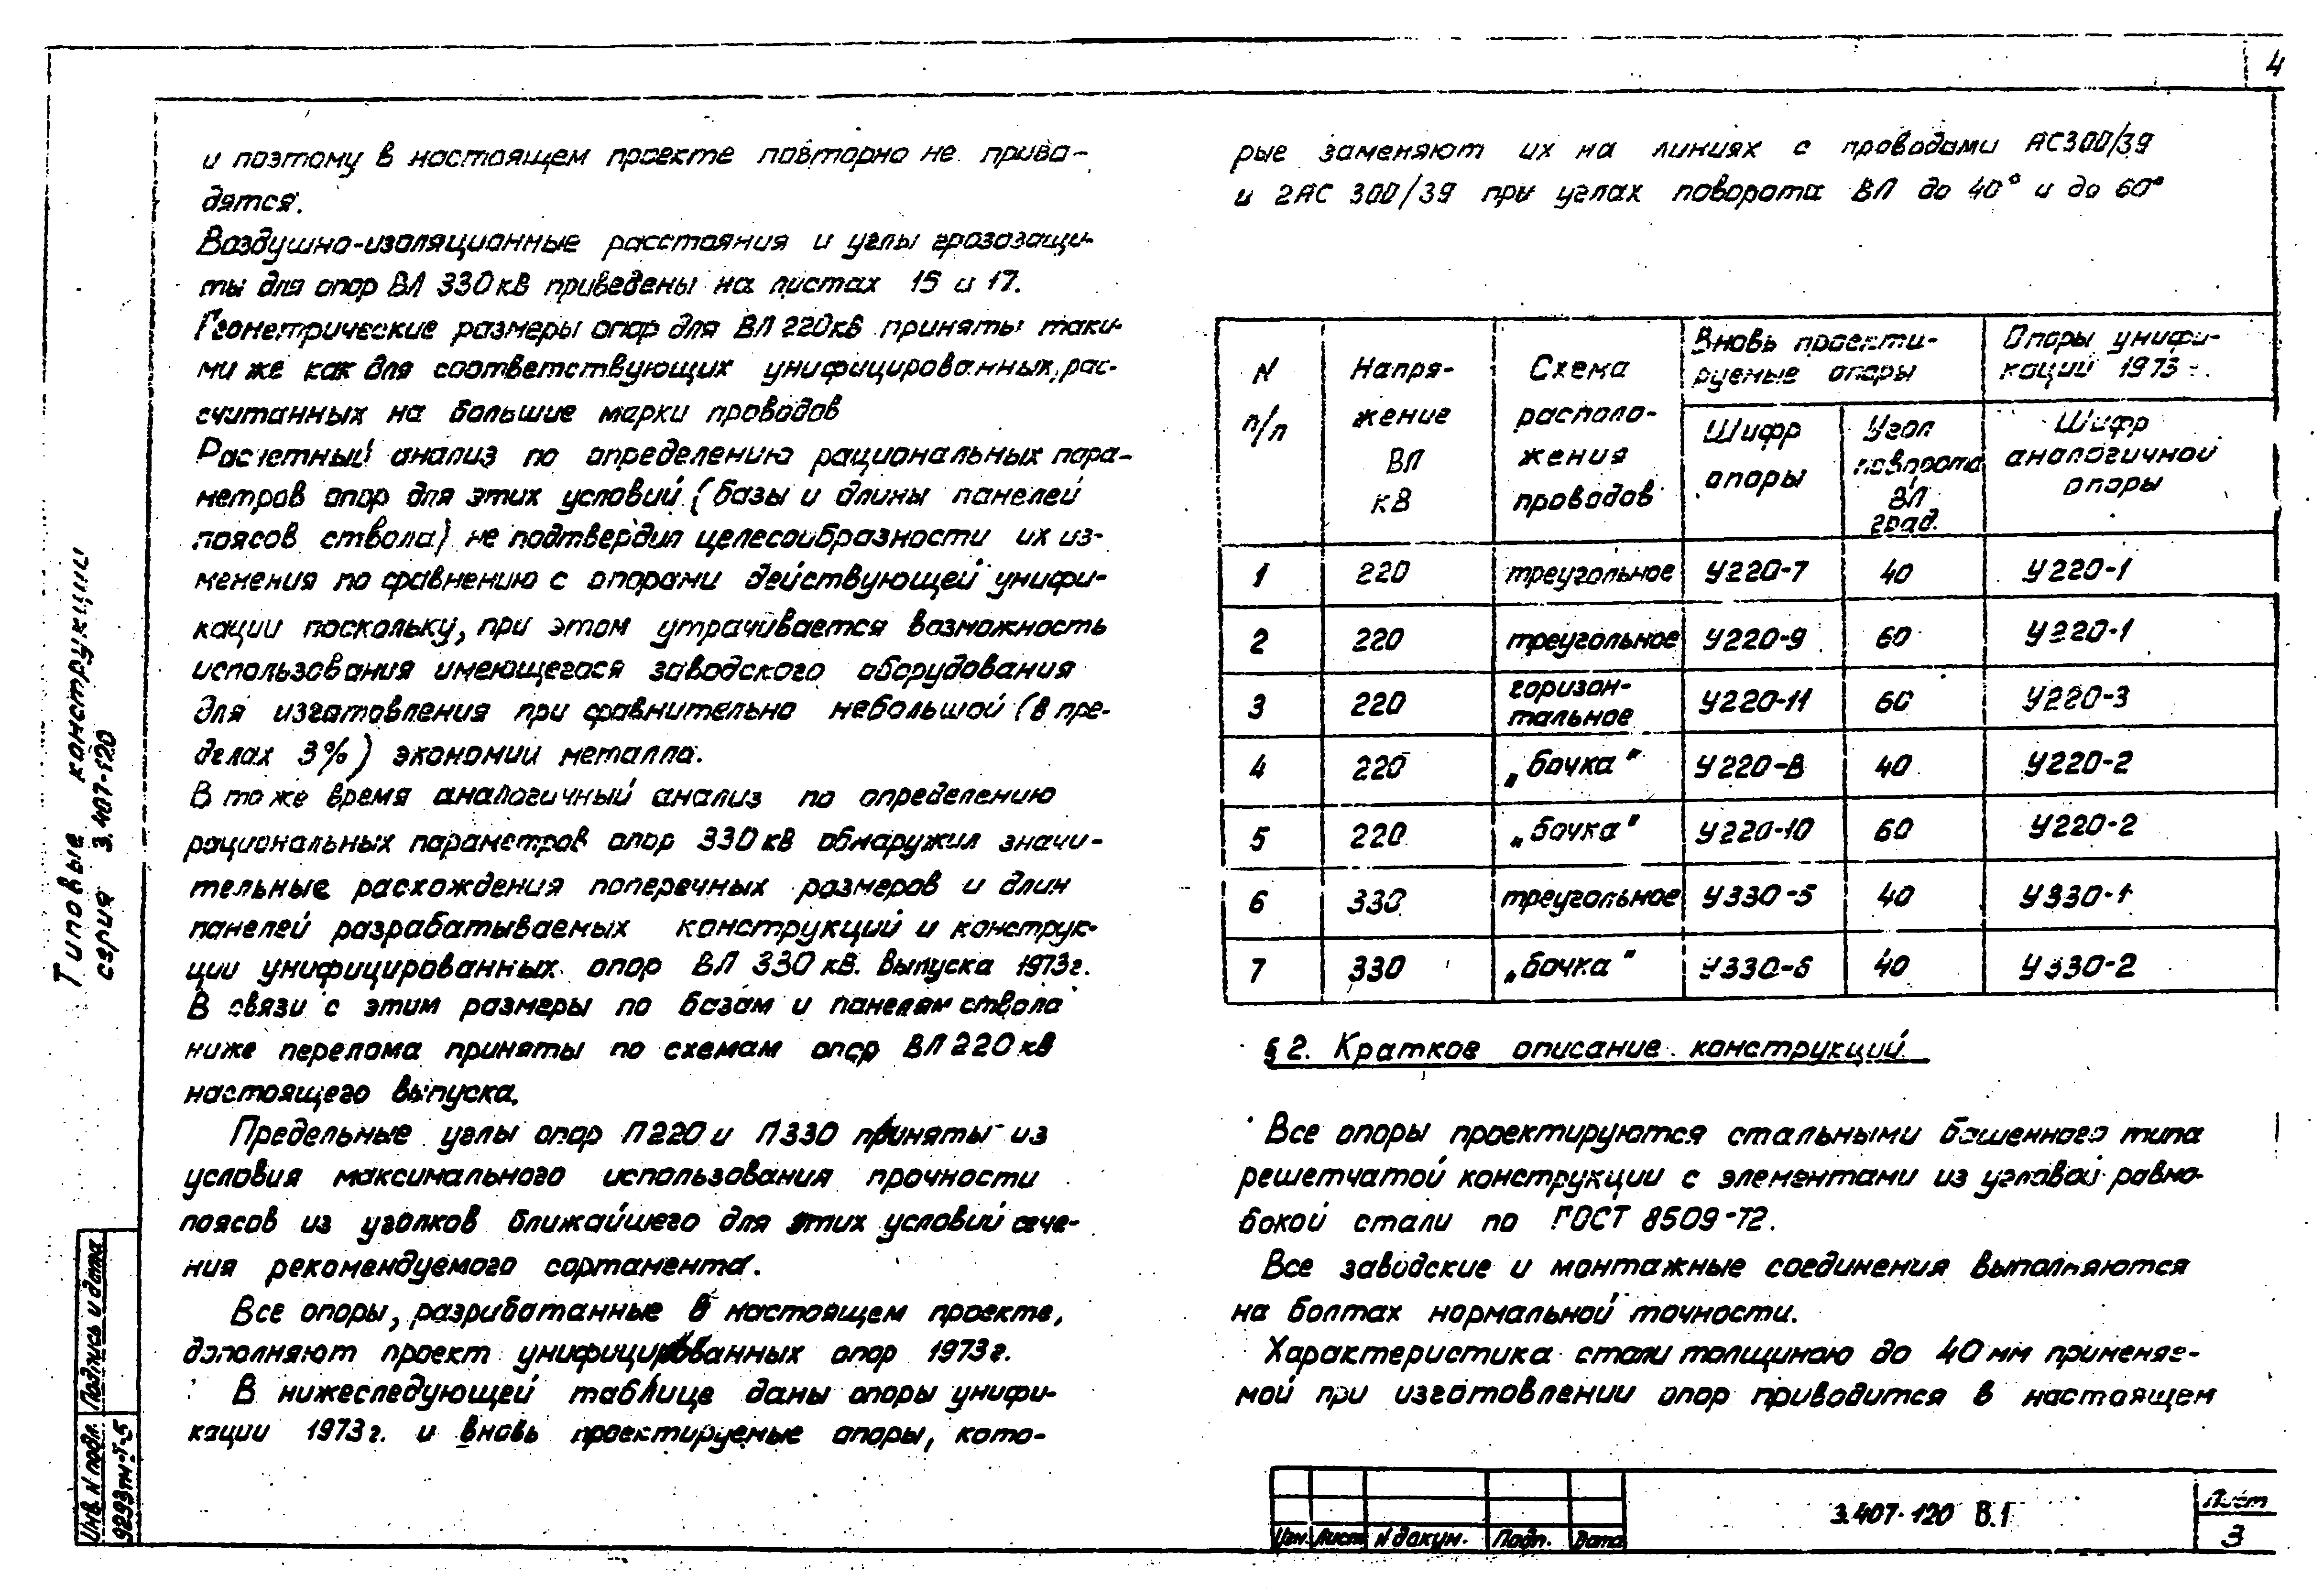 4
и поэтому в настоящем проекте повторно не приво-
дятся.
Воздушно-изоляционные расстояния и углы грозозащи-
ты для опор ВЛ 330кВ приведены на листах 15 и 17.
Геометрические размеры опор для ВЛ 220кв приняты таки-
ми же как для соответствующих унифицированных, рас-
считанных на большие марки проводов
Расчетный анализ по определению рациональных пара-
метров опор для этих условий (базы и длины панелей
поясов ствола) не подтвердил целесообразности их из-
менения по сравнению с опорами действующей унифи-
кации поскольку, при этом утрачивается возможность
использования имеющегося заводского оборудования
для изготовления при сравнительно небольшой (в пре-
делах 3%) экономии металла.
В то же время аналогичный анализ по определению
рациональных параметров опор 330кВ обнаружил значи-
тельные расхождения поперечных размеров и длин
панелей разрабатываемых конструкций и конструк-
ции унифицированных опор ВЛ 330 кВ. выпуска 1973г.
В связи с этим размеры по базам и панелям ствола
ниже перелома приняты по схемам опор ВЛ 220кв
настоящего выпуска.
Предельные углы опор П220 и П330 приняты из
условия максимального использования прочности
поясов из уголков ближайшего для этих условий сече-
ния рекомендуемого сортамента.
Все опоры, разработанные в настоящем проекте,
дополняют проект унифицированных опор 1973г.
В нижеследующей таблице даны опоры унифи-
кации 1973г. и вновь проектируемые опоры, кото-
рые заменяют их на линиях с проводами АС300/39
и 2АС 300/39 при углах поворота ВЛ до 40° и до 60°
N п/п
Напря-
жение
ВЛ
кВ
Схема
располо-
жения
проводов
Вновь проекти-
руемые опоры
Шифр
опоры
Угол
поворота
ВЛ
град.
Опоры унифи-
кации 1973 г.
Шифр
аналогичной
опоры
1 220 треугольное У220-7 40 У220-1
2 220 треугольное У220-9 60 У220-1
3 220 горизон-
тальное У220-11 60 У220-3
4 220 „бочка" У220-8 40 У220-2
5 220 „бочка" У220-10 60 У220-2
6 330 треугольное У330-5 40 У330-1
7 330 „бочка" У330-6 40 У330-2
§ 2. Краткое описание конструкций.
Все опоры проектируются стальными башенного типа
решетчатой конструкции с элементами из угловой равно-
бокой стали по ГОСТ 8509-72.
Все заводские и монтажные соединения выполняются
на болтах нормальной точности.
Характеристика стали толщиною до 40 мм применяе-
мой при изготовлении опор приводится в настоящем
Типовые конструкции
серия 3.407-120
Инв. N подл. Подпись и дата
9293тм-Т-5
Изм. Лист N докум. Подп. Дата
3.407-120 В.1
Лист
3